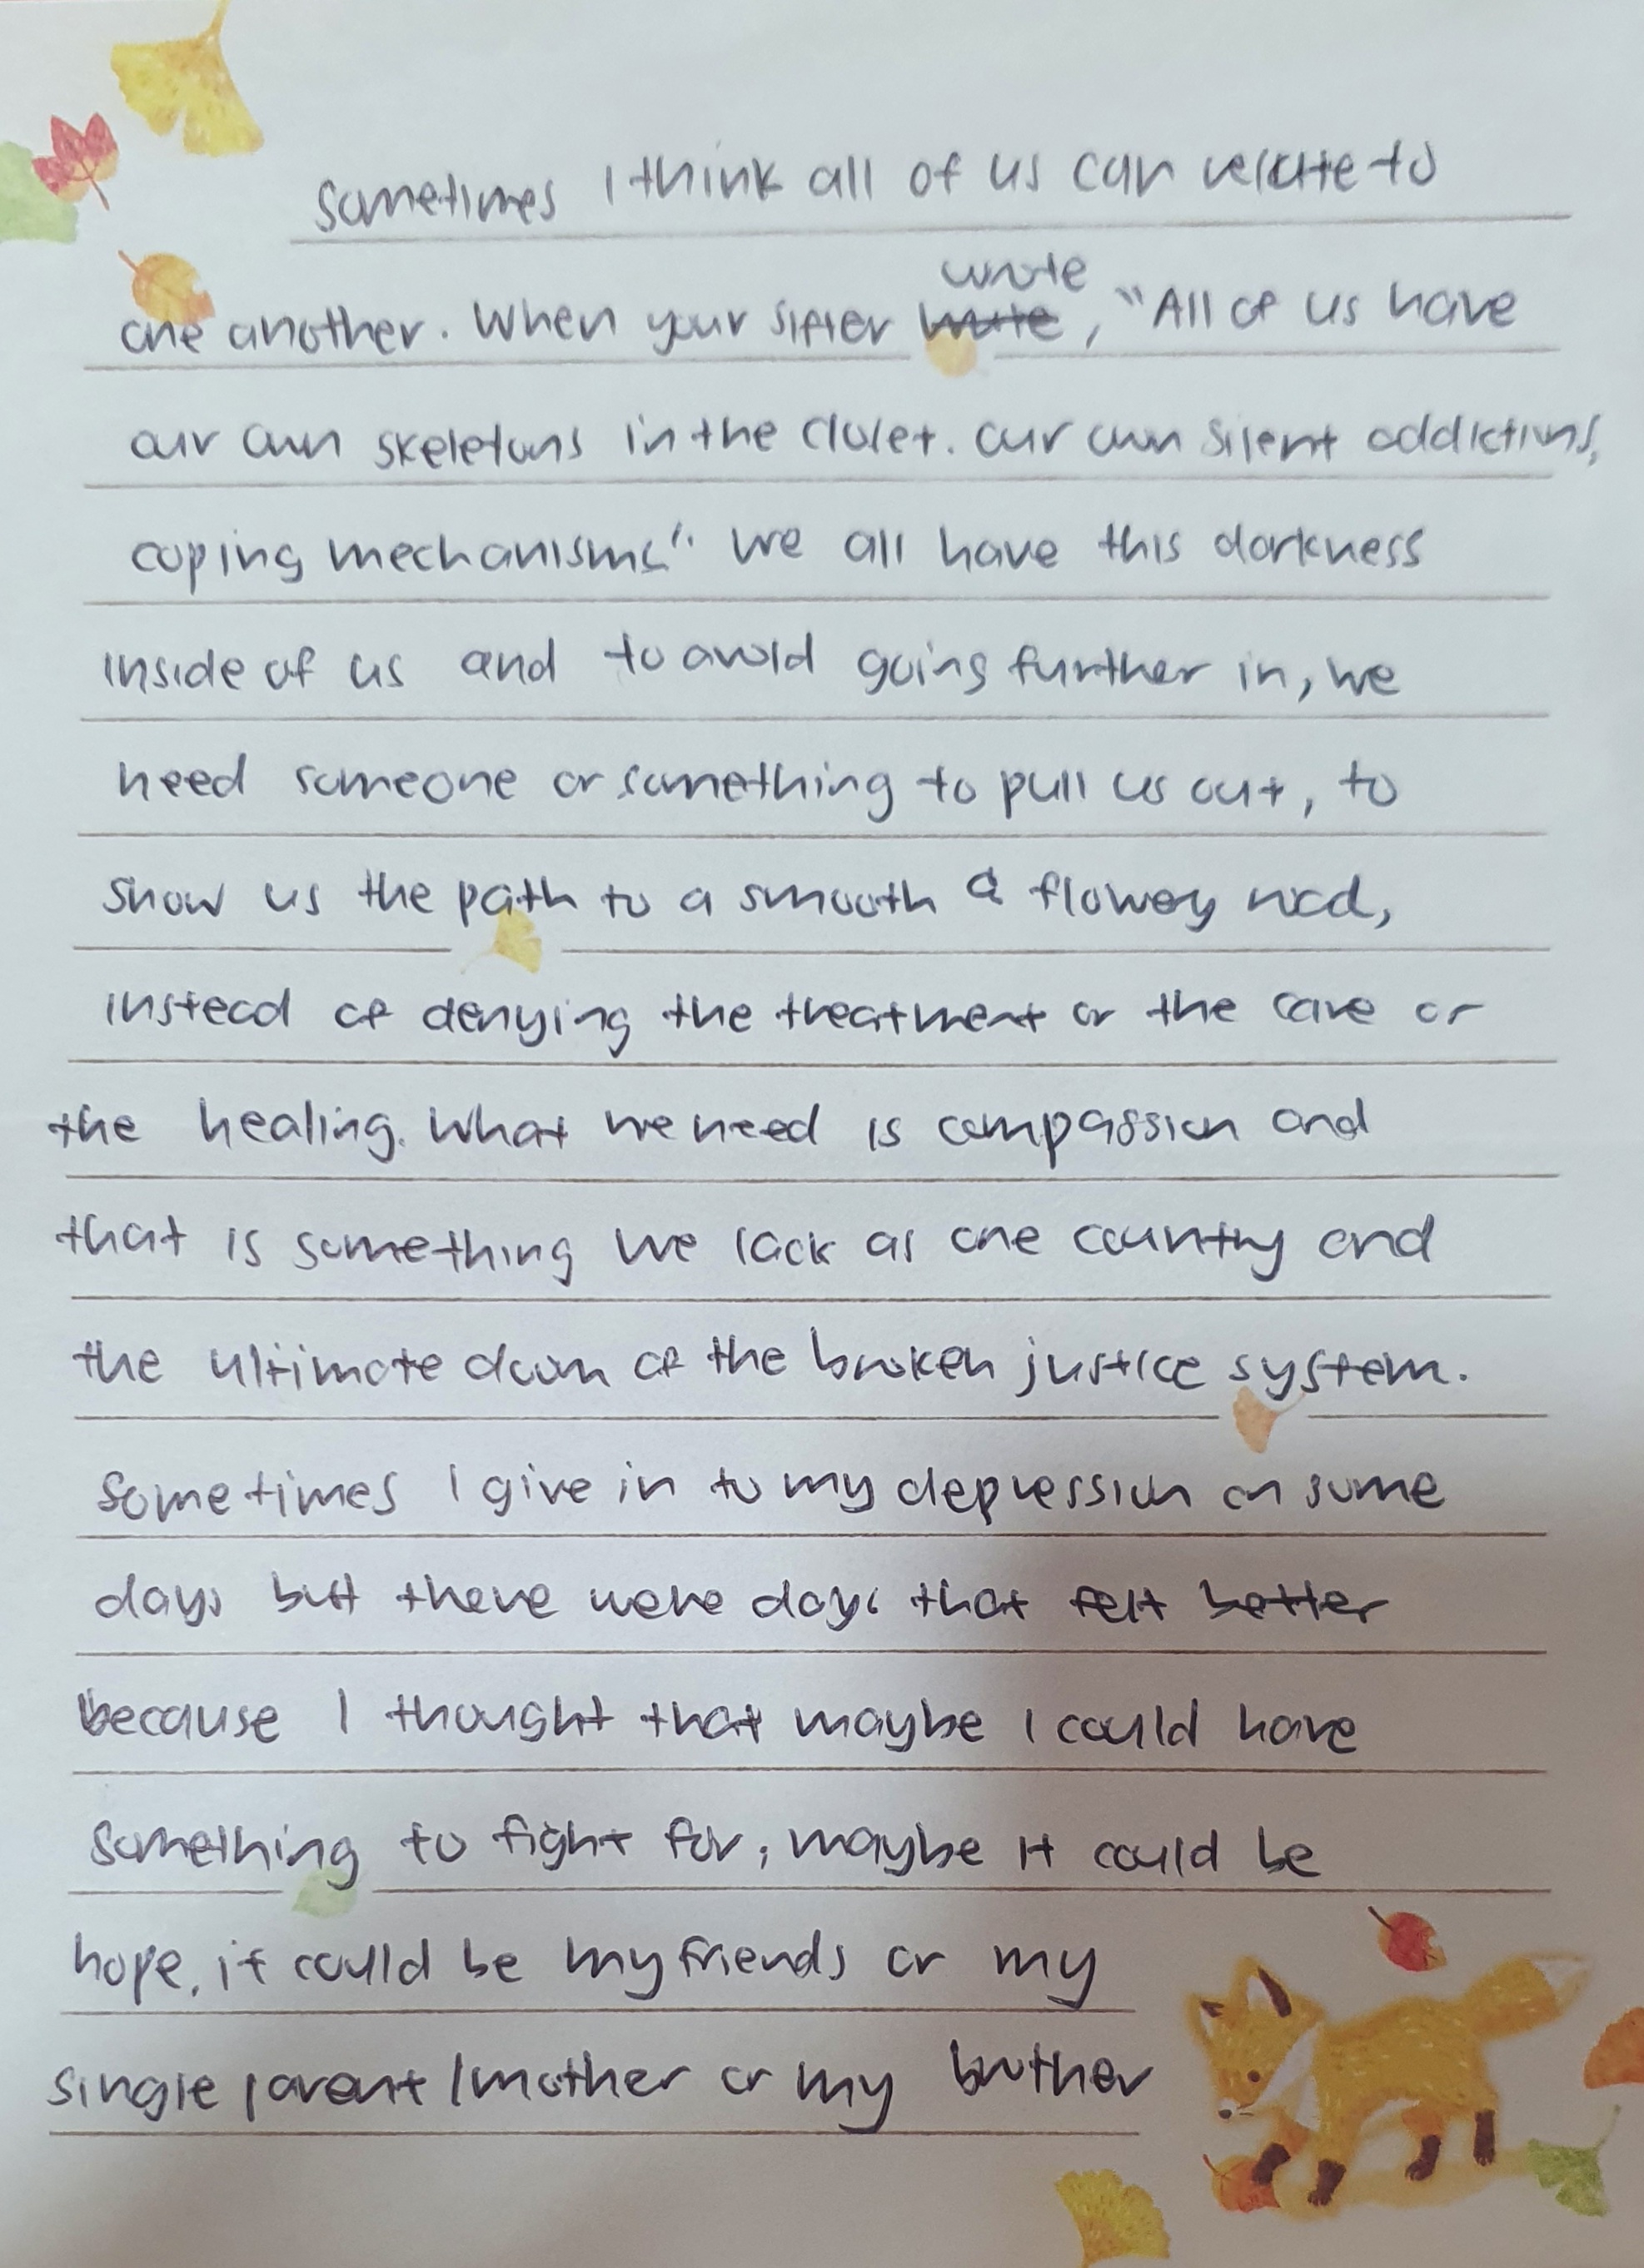 sometimes I think all of us can relate to
wrote
one another. When your sister wrote, "All of us have
our own skeletons in the closet. our own silent addictions,
coping mechanisms". We all have this darkness
inside of us and to avoid going further in, we
need someone or something to pull us out, to
show us the path to a smooth & flowey road,
instead of denying the treatment or the care or
the healing. What we need is compassion and
that is something we lack as one country and
the ultimate doom of the broken justice system.
Sometimes I give in to my depression on some
days but there were days that felt better
because I thought that maybe I could have
something to fight for, maybe it could be
hope, it could be my friends or my
single parent/mother or my brother